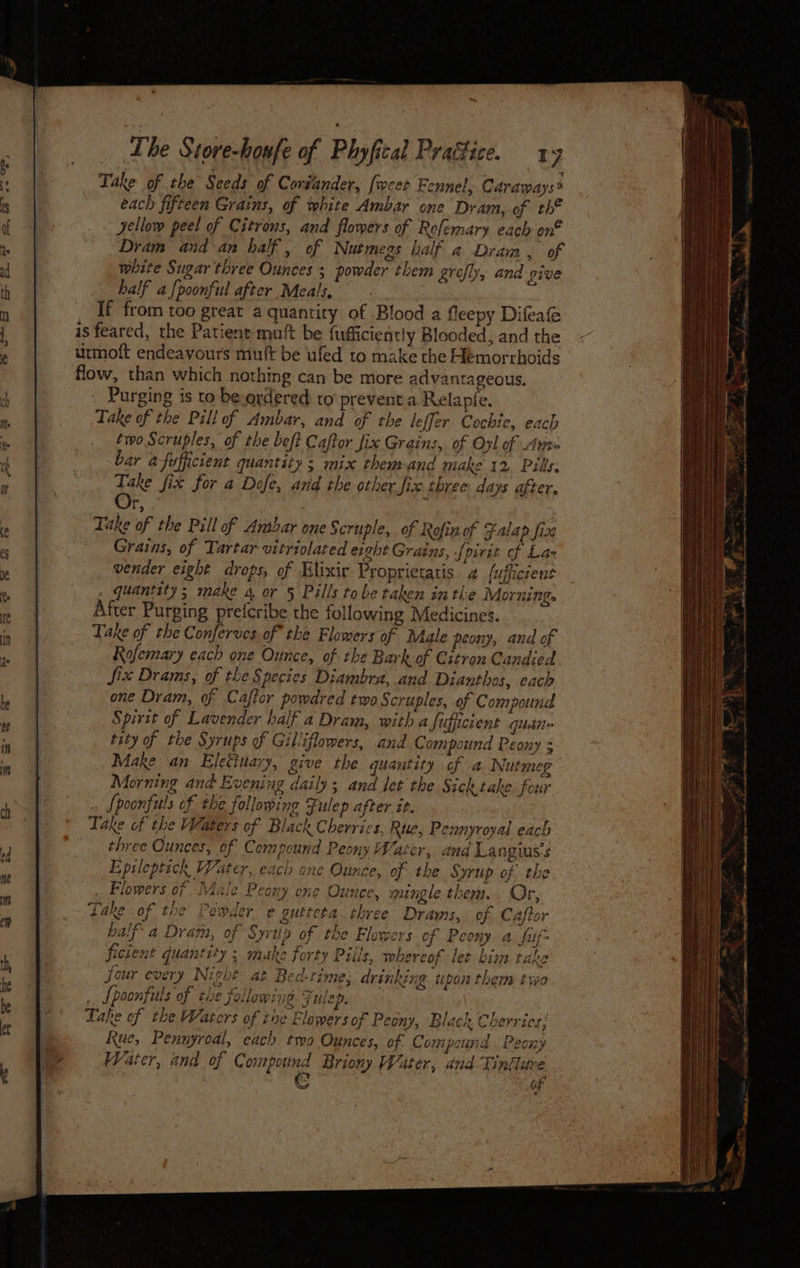 The Store-houſe of Phyſical Practice. 17
Take of the Seeds of Coriander, ſweet Fennel, Caraways,
each fifteen Grains, of white Ambar one Dram, of the
yellow peel of Citrons, and flowers of Roſemary each one
Dram and an half, of Nutmegs half a Dram, of
white Sugar three Ounces ; powder them groſly, and give
half a ſpoonful after Meals.
If from too great a quantity of Blood a ſleepy Diſeaſe
is feared, the Patient muſt be ſufficiently Blooded, and the
utmoſt endeavours muſt be uſed to make the Hemorrhoids
flow, than which nothing can be more advantageous.
Purging is to be ordered to prevent a Relapſe.
Take of the Pill of Ambar, and of the leſſer Cochie, each
two Scruples, of the beſt Caſtor ſix Grains, of Oyl of Am-
bar a ſufficient quantity ; mix them and make 12 Pills.
Take ſix for a Doſe, and the other ſix three days after.
Or,
Take of the Pill of Ambar one Scruple, of Roſin of Jalap ſix
Grains, of Tartar vitriolated eight Grains, ſpirit of La-
vender eight drops, of Elixir Proprietatis a ſufficient
quantity ; make 4 or 5 Pills to be taken in the Morning.
After Purging preſcribe the following Medicines.
Take of the Conſerves of the Flowers of Male peony, and of
Roſemary each one Ounce, of the Bark of Citron Candied
ſix Drams, of the Species Diambra, and Dianthos, each
one Dram, of Caſtor powdred two Scruples, of Compound
Spirit of Lavender half a Dram, with a ſufficient quan-
tity of the Syrups of Gilliflowers, and Compound Peony ;
Make an Electuary, give the quantity of a Nutmeg
Morning and Evening daily ; and let the Sick take four
ſpoonfuls of the following Julep after it.
Take of the Waters of Black Cherries, Rue, Pennyroyal each
three Ounces, of Compound Peony Water, and Langius's
Epileptick Water, each one Ounce, of the Syrup of the
Flowers of Male Peony one Ounce, mingle them. Or,
Take of the Powder e gutteta three Drams, of Caſtor
half a Dram, of Syrup of the Flowers of Peony a ſuf-
ficient quantity ; make forty Pills, whereof let him take
four every Night at Bed-time, drinking upon them two
ſpoonfuls of the following Julep.
Take of the Waters of the Flowers of Peony, Black Cherries,
Rue, Pennyroal, each two Ounces, of Compound Peony
Water, and of Compound Briony Water, and Tincture
C of